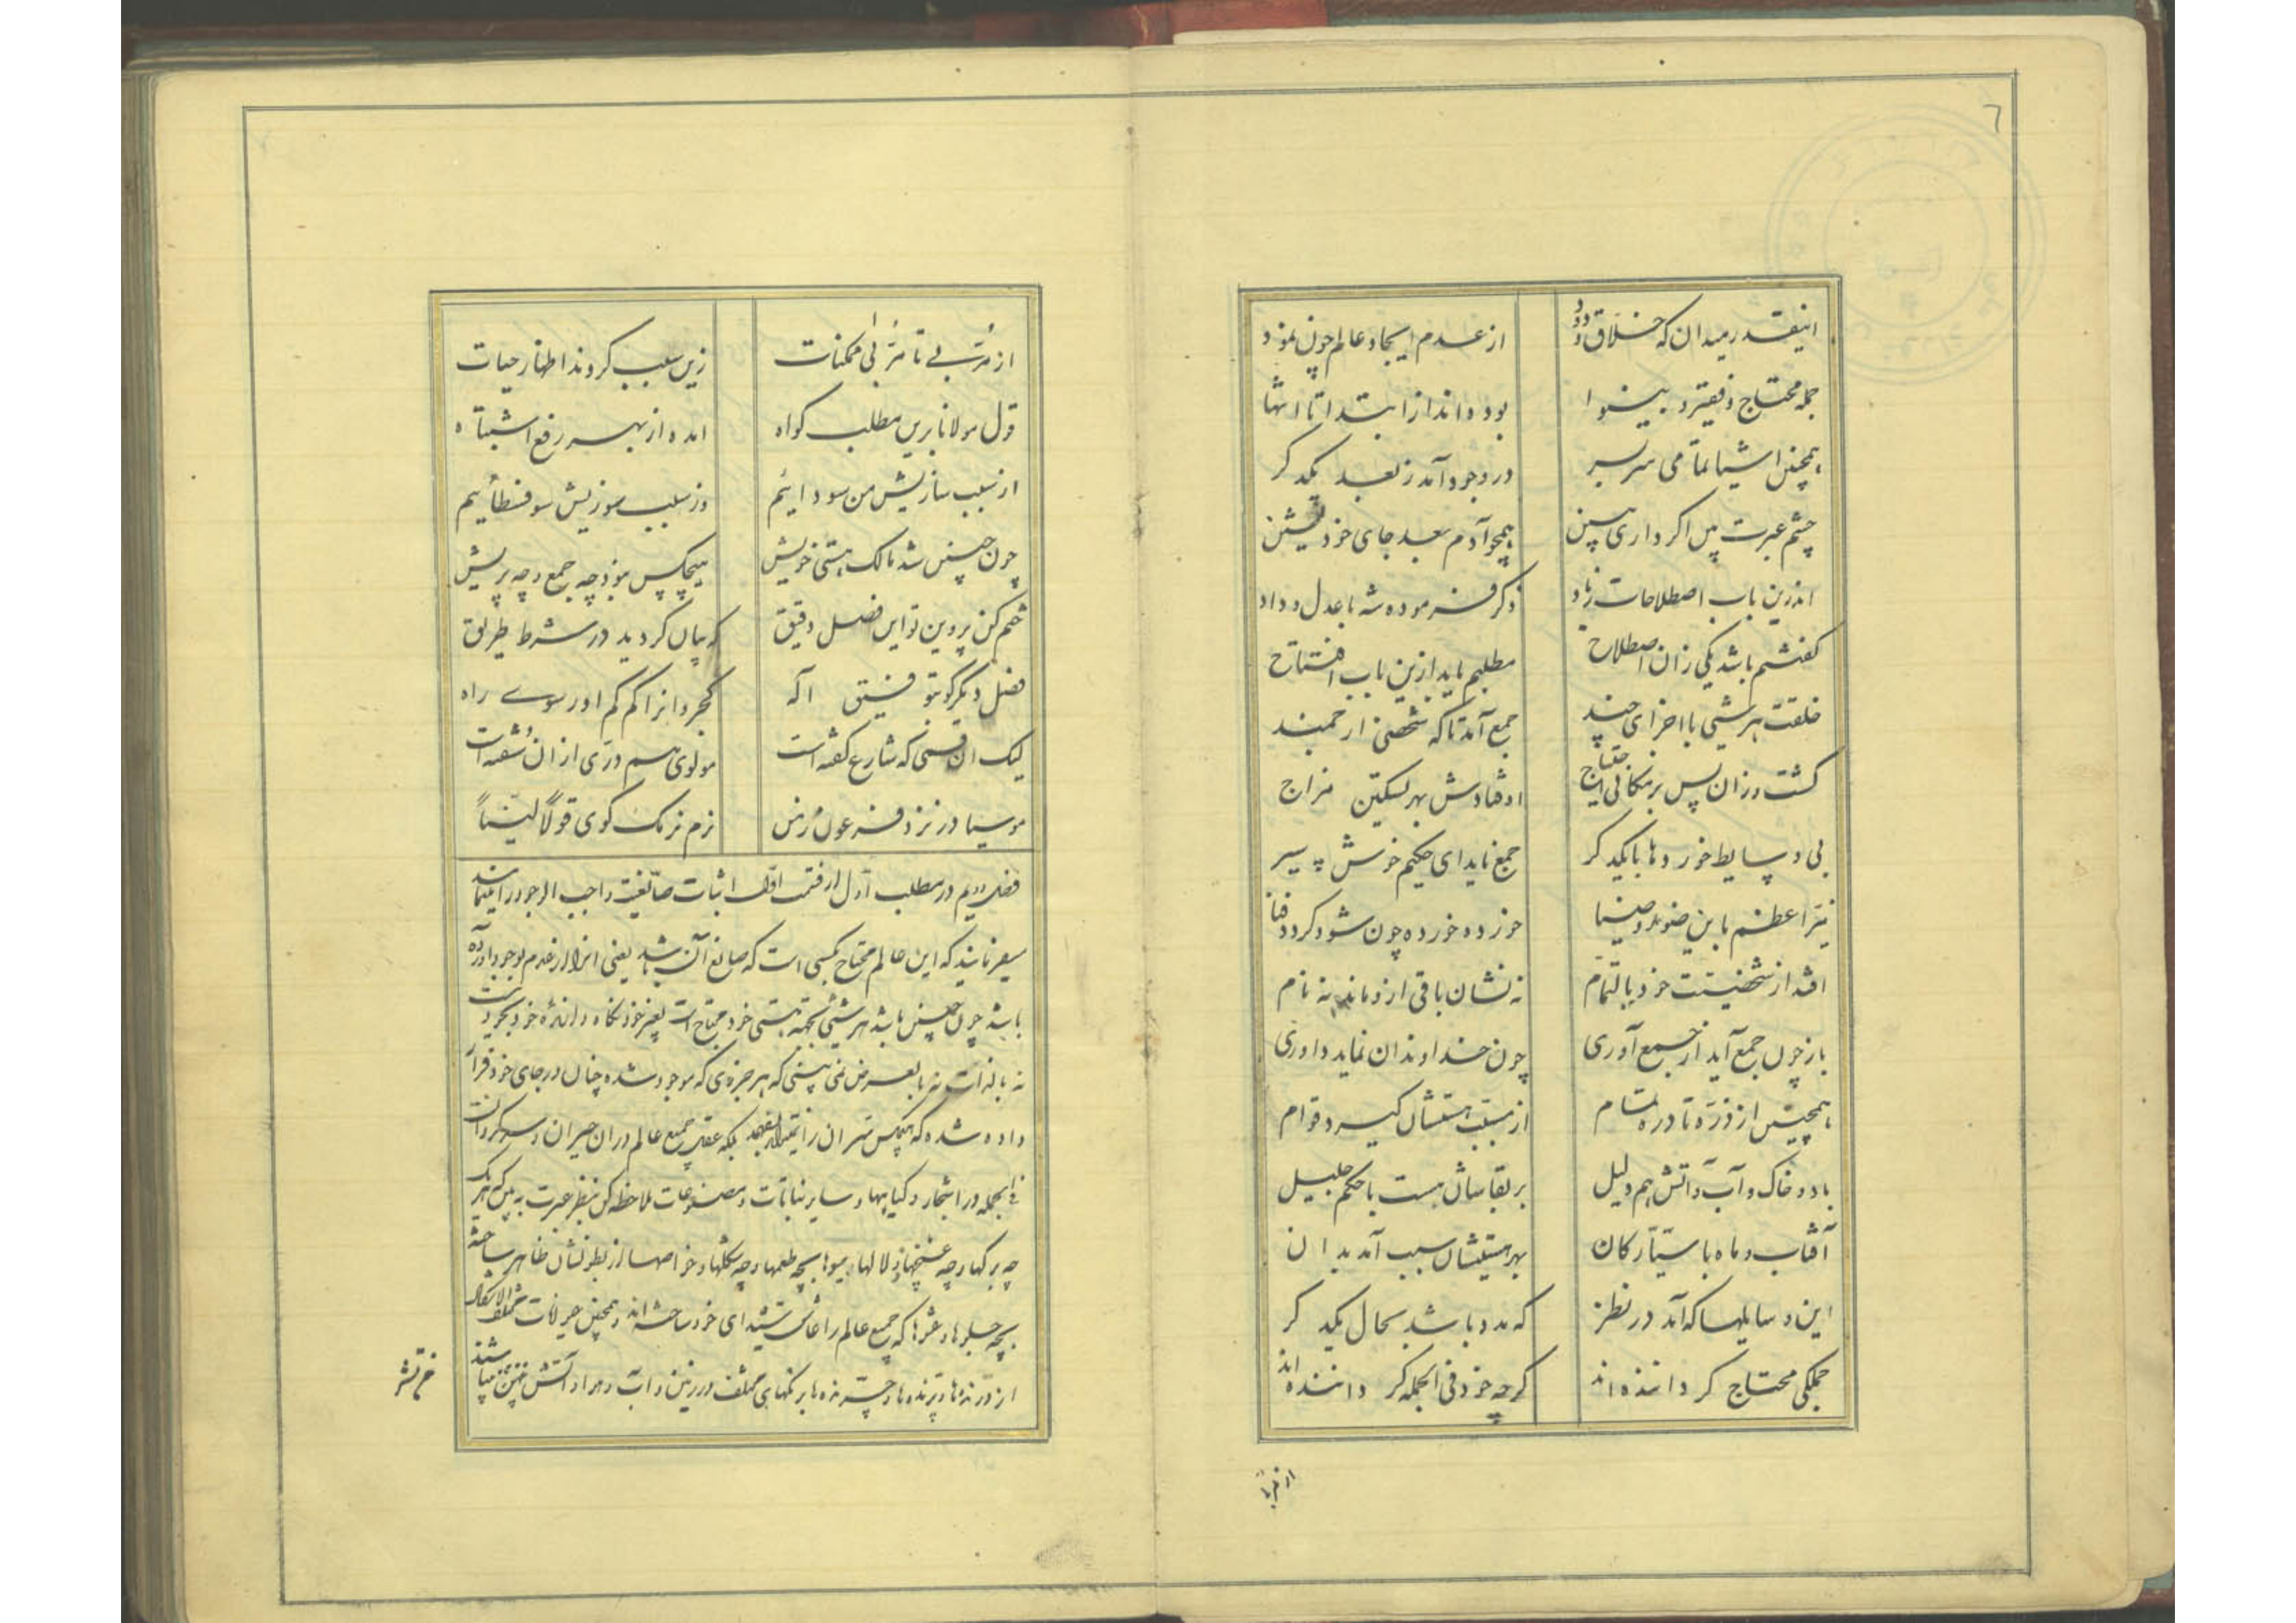 ٦
اینقدر میدان که خلاق ودود
از عدم ایجاد عالم چون نمود
جمله محتاج و فقیر و بینوا
بوده‌اند از ابتدا تا انتها
همچنین اشیا تمامی سربسر
در وجود آمد ز بعد یکدگر
چشم عبرت بین اگر داری ببین
همچو آدم بعد جای خود نشین
اندرین باب اصطلاحات زیاد
ذکر فرموده شه با عدل و داد
گفتنم باشد یکی زان اصطلاح
مطلبم باید ازین باب افتتاح
خلقت هر شیئ با اجزای چند
جمع آمد تا که شخصی ارجمند
گشت و زان پس بر مکانی احتیاج
اوفتادش بهر تسکین مزاج
بی وسایط خوردها با یکدگر
جمع ناید ای حکیم خوش سیر
نیر اعظم با این ضوء و ضیا
خورده خورده چون شود گردد فنا
افتد از شخصیت خود بالتمام
نه نشان باقی ازو ماند نه نام
باز چون جمع آید از جمع آوری
چون خداوندان نماید داوری
همچنین از ذره تا دره تمام
از سبب هستیشان گیرد قوام
باد و خاک و آب و آتش هم دلیل
بر بقاشان هست با حکم جلیل
آفتاب و ماه با سیارگان
بهر هستیشان سبب آمد بدان
این وسایلها که آمد در نظر
که مدد باشد بحال یکدگر
جملگی محتاج گرداننده‌اند
گرچه خود فی الجمله گرداننده‌اند
از مربی تا مربی ممکنات
زین سبب کردند اظهار حیات
قول مولانا برین مطلب گواه
آمده از بهر رفع اشتباه
از سبب سازیش من سودائیم
وز سبب سوزیش سوفسطائیم
چون چنین شد مالک هستی خویش
هیچکس نبود چه جمع و چه پریش
ختم کن پروین تو این فصل دقیق
که بیان گردید در شرط طریق
فصل دیگر گو بتوفیق اله
کجروانرا کم کم آور سوی راه
لیک آن قسمی که شارع گفته است
مولوی هم دری از آن سفته است
موسیا در نزد فرعون زمن
نرم نرمک گوی قولاً لیناً
فصل دویم در مطلب اول از قسمت اول اثبات صانعیت واجب الوجود را مینماید
میفرمایند که این عالم محتاج کسی است که صانع آن باشد یعنی انرا از عدم بوجود آورده
باشد چون چنین باشد هر شیئی بجهة هستی خود محتاج است بغیر خود نگاه دارنده خود بخود نیست
نه بالذات نه بالعرض نمی بینی که هر چیزی که موجود شده چنان در جای خود قرار
داده شده که هیچکس سر آن را نتواند فهمد بلکه عقل جمیع عالم در آن حیران و سرگردانست
فی الجمله در اشجار و گیاهها و سایر نباتات و مصنوعات ملاحظه کن بنظر عبرت به بین که هر یک
چه برگها و چه غنچها و لالها و میوها بچه طعمها و چه شکلها و خواصها از بطونشان ظاهر ساخته
بچه جلوها و عشوها که جمیع عالم را عاشق شیدای خود ساخته‌اند و همچنین حیوانات مختلف الاشکال
از درنده‌ها و پرنده‌ها و چرنده‌ها برنگهای مختلف در زمین و آب و هوا و آتش